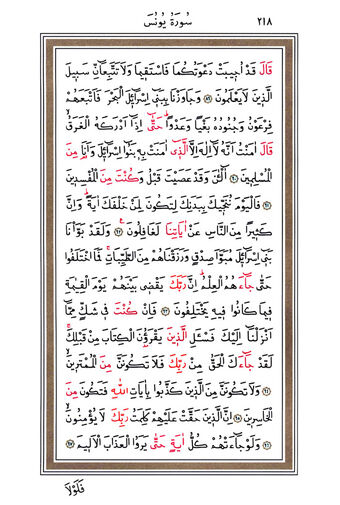 ٢١٨ سُورَةُ يُونُسَ
قَالَ قَدْ اُج۪يبَتْ دَعْوَتُكُمَا فَاسْتَق۪يمَا وَلَا تَتَّبِعَٓانِّ سَب۪يلَ
الَّذ۪ينَ لَا يَعْلَمُونَ ﴿٨٩﴾ وَجَاوَزْنَا بِبَن۪ٓي اِسْرَٓائ۪لَ الْبَحْرَ فَاَتْبَعَهُمْ
فِرْعَوْنُ وَجُنُودُهُ بَغْيًا وَعَدْوًاۜ حَتّٰٓى اِذَٓا اَدْرَكَهُ الْغَرَقُۙ
قَالَ اٰمَنْتُ اَنَّهُ لَٓا اِلٰهَ اِلَّا الَّذ۪ٓي اٰمَنَتْ بِه۪ بَنُٓوا اِسْرَٓائ۪لَ وَاَنَا۬ مِنَ
الْمُسْلِم۪ينَ ﴿٩٠﴾ آٰلْـٰٔنَ وَقَدْ عَصَيْتَ قَبْلُ وَكُنْتَ مِنَ الْمُفْسِد۪ينَ
﴿٩١﴾ فَالْيَوْمَ نُنَجّ۪يكَ بِبَدَنِكَ لِتَكُونَ لِمَنْ خَلْفَكَ اٰيَةًۜ وَاِنَّ
كَث۪يرًا مِنَ النَّاسِ عَنْ اٰيَاتِنَا لَغَافِلُونَ۟ ﴿٩٢﴾ وَلَقَدْ بَوَّأْنَا
بَن۪ٓي اِسْرَٓائ۪لَ مُبَوَّاَ صِدْقٍ وَرَزَقْنَاهُمْ مِنَ الطَّيِّبَاتِۚ فَمَا اخْتَلَفُوا
حَتّٰى جَٓاءَهُمُ الْعِلْمُۜ اِنَّ رَبَّكَ يَقْض۪ي بَيْنَهُمْ يَوْمَ الْقِيٰمَةِ
ف۪يمَا كَانُوا ف۪يهِ يَخْتَلِفُونَ ﴿٩٣﴾ فَاِنْ كُنْتَ ف۪ي شَكٍّ مِمَّٓا
اَنْزَلْنَٓا اِلَيْكَ فَسْـَٔلِ الَّذ۪ينَ يَقْرَؤُ۫نَ الْكِتَابَ مِنْ قَبْلِكَۚ
لَقَدْ جَٓاءَكَ الْحَقُّ مِنْ رَبِّكَ فَلَا تَكُونَنَّ مِنَ الْمُمْتَر۪ينَۙ
﴿٩٤﴾ وَلَا تَكُونَنَّ مِنَ الَّذ۪ينَ كَذَّبُوا بِاٰيَاتِ اللّٰهِ فَتَكُونَ مِنَ
الْخَاسِر۪ينَ ﴿٩٥﴾ اِنَّ الَّذ۪ينَ حَقَّتْ عَلَيْهِمْ كَلِمَتُ رَبِّكَ لَا يُؤْمِنُونَۙ
﴿٩٦﴾ وَلَوْ جَٓاءَتْهُمْ كُلُّ اٰيَةٍ حَتّٰى يَرَوُا الْعَذَابَ الْاَل۪يمَ ﴿٩٧﴾
فَلَوْلَا